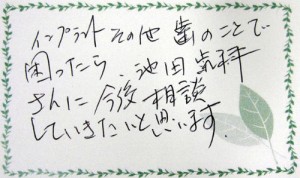 インプラントその他 歯のことで
困ったら、池田歯科
さんに今後相談
していきたいと思います.